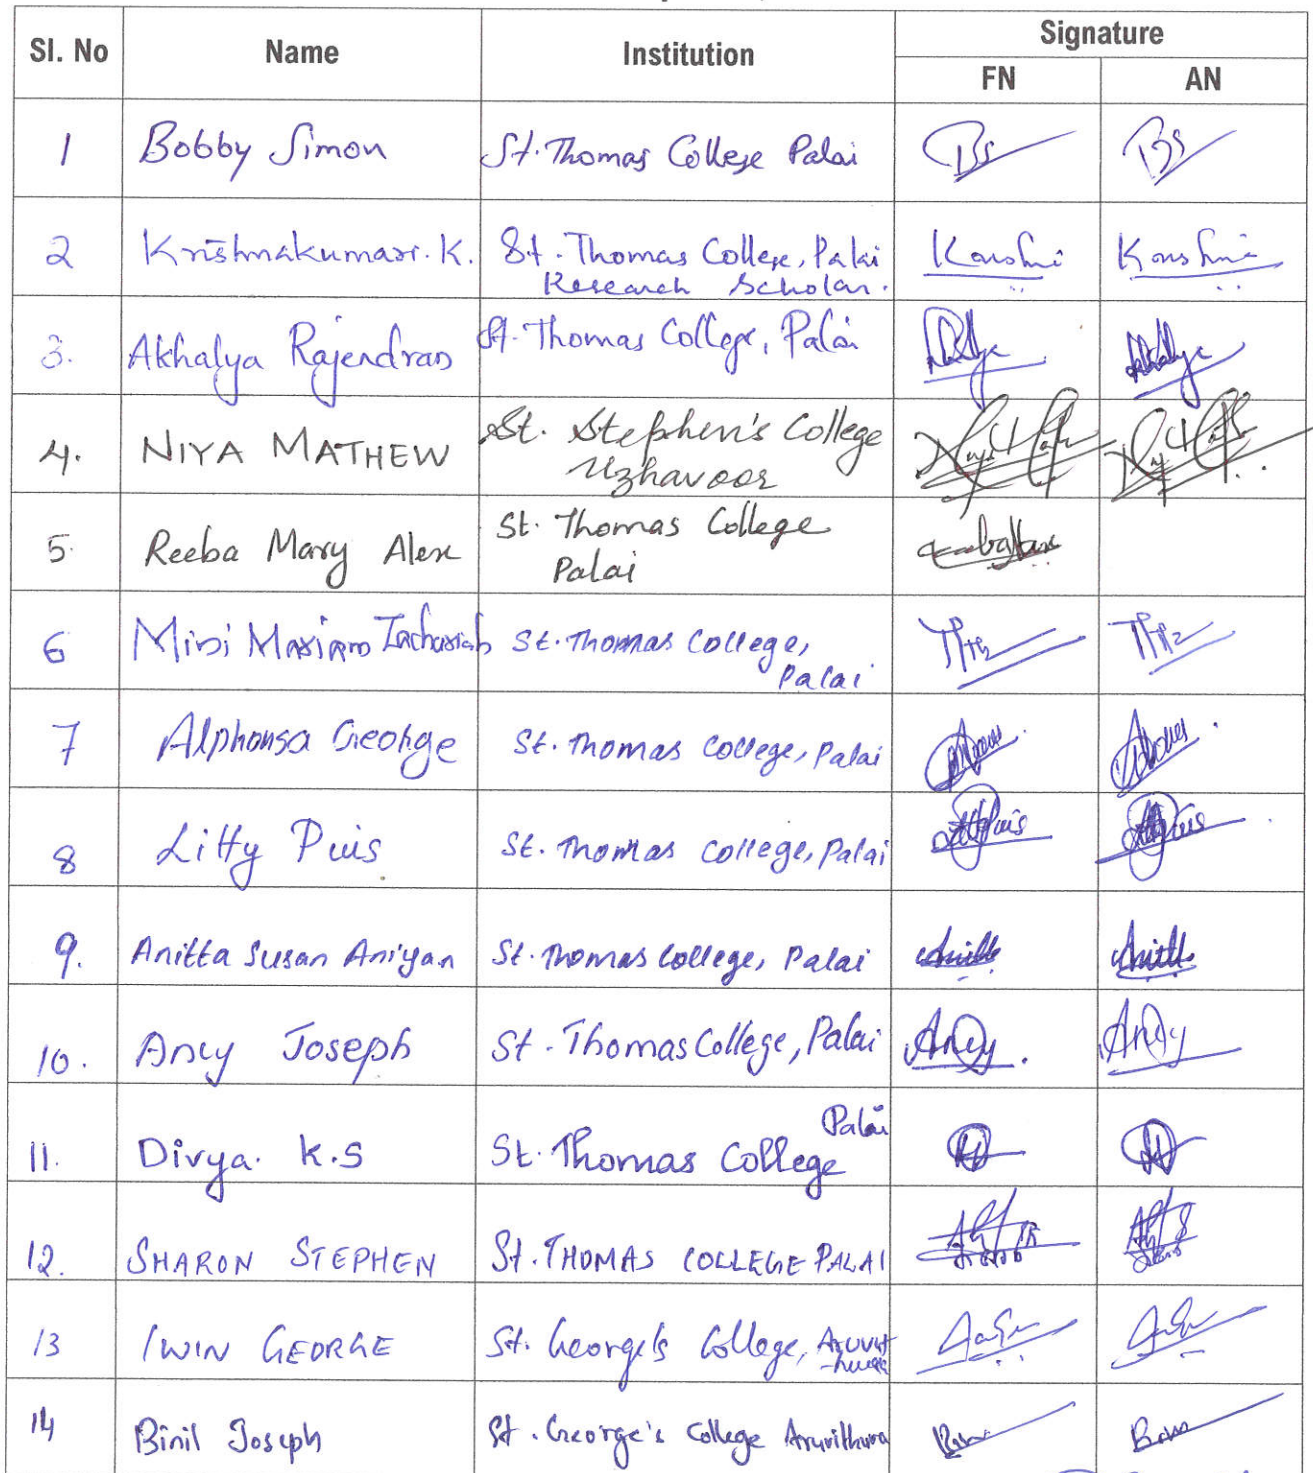 Sl. No Name Institution Signature
FN AN
1 Bobby Simon St. Thomas College Palai
2 Krishnakumari. K. St. Thomas College, Palai
Research Scholar.
3. Akhalya Rajendran St. Thomas College, Palai
4. NIYA MATHEW St. Stephen's College
Uzhavoor
5. Reeba Mary Alex St. Thomas College
Palai
6 Mini Mariam Zachariah St. Thomas College,
Palai
7 Alphonsa George St. Thomas College, Palai
8 Litty Pius St. Thomas College, Palai
9. Anitta Susan Aniyan St. Thomas College, Palai
10. Ancy Joseph St. Thomas College, Palai
11. Divya. K.S St. Thomas College Palai
12. SHARON STEPHEN St. THOMAS COLLEGE PALAI
13 IWIN GEORGE St. George's College,
14 Binil Joseph St. George's College Aruvithura